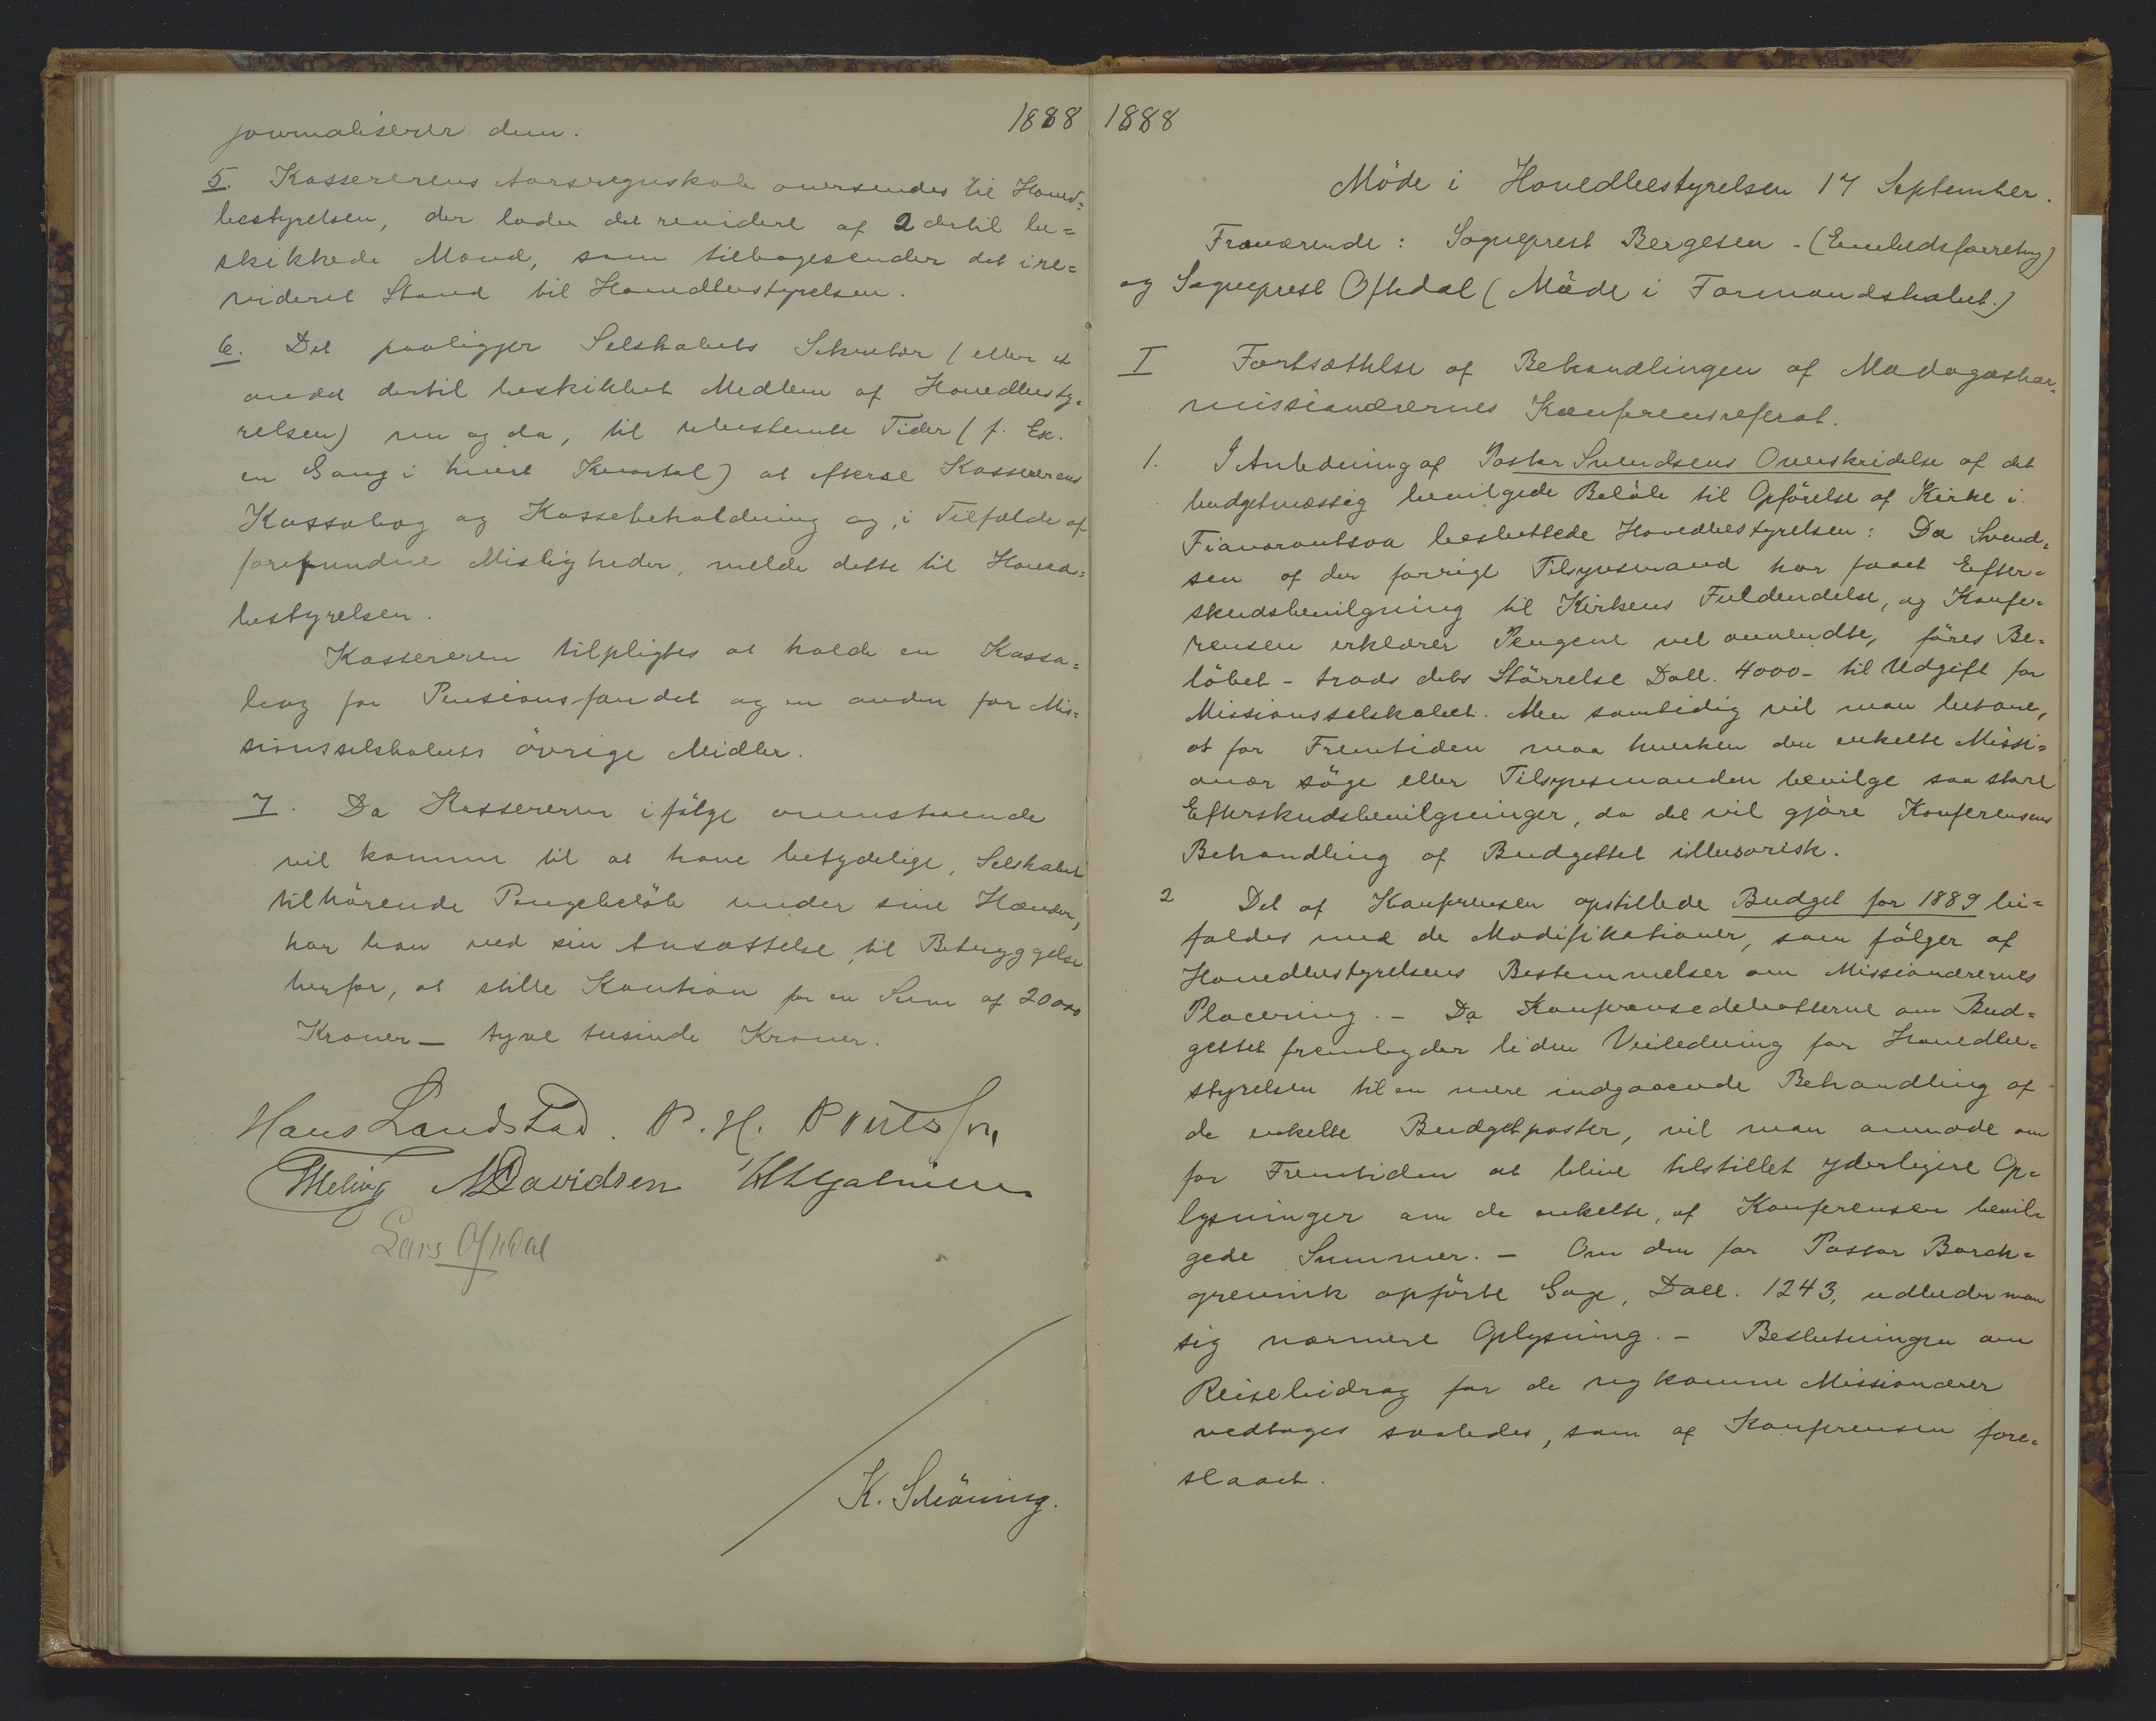 1888
journaliserer dem.
5. Kassererens Aarsregnskab oversendes til Hoved=
bestyrelsen, der lader det revidere af 2 dertil be=
skikkede Mænd, som tilbagesender det i re=
videret Stand til Hovedbestyrelsen.
6. Det paaligger Selskabets Sekretær (eller et
andet dertil beskikket Medlem af Hovedbesty=
relsen) nu og da, til ubestemte Tider (f. Ex.
en Gang i hvert Kvartal) at efterse Kassererens
Kassabog og Kassebeholdning og, i Tilfælde af
forefundne Misligheder, melde dette til Hoved=
bestyrelsen.
Kassereren tilpligtes at holde en Kassa=
bog for Pensionsfondet og en anden for Mis=
sionsselskabets övrige Midler.
7. Da Kassereren ifölge ovenstaaende
vil komme til at have betydelige, Selskabet
tilhörende Pengebelöb under sine Hænder,
har han ved sin Ansættelse, til Betryggelse
herfor, at stille Kaution for en Sum af 20000
Kroner — tyve tusinde Kroner.
Hans Landstad. P. H.
Meling MDavidsen
Lars Oftedal
K. Schöning.
1888
Möde i Hovedbestyrelsen 17 September.
Fraværende: Sogneprest Bergesen - (Embedsforretng)
og Sogneprest Oftedal (Möde i Formandskabet.)
I Fortsættelse af Behandlingen af Madagaskar=
missionærernes Konferensreferat.
1. I Anledning af Pastor Svendsens Overskridelse af det
budgetmæssig bevilgede Belöb til Opförelse af Kirke i
Fianarantsoa besluttede Hovedbestyrelsen: Da Svend=
sen af den forrige Tilsynsmand har faaet Efter=
skudsbevilgning til Kirkens Fuldendelse, og Konfe=
rensen erklærer Pengene vel anvendte, föres Be=
löbet - trods dets Störrelse Doll. 4000 - til Udgift for
Missionsselskabet. Men samtidig vil man betone,
at for Fremtiden maa hverken den enkelte Missi=
onær söge eller Tilsynsmanden bevilge saa store
Efterskudsbevilgninger, da det vil gjöre Konferensens
Behandling af Budgettet illusorisk.
2 Det af Konferensen opstillede Budget for 1889 bi=
faldes med de Modifikationer, som fölger af
Hovedbestyrelsens Bestemmelser om Missionærernes
Placering. - Da Konferensedebatterne om Bud=
gettet frembyder liden Veiledning for Hovedbe=
styrelsen til en mere indgaaende Behandling af
de enkelte Budgetposter, vil man anmode om
for Fremtiden at blive tilstillet yderligere Op=
lysninger om de enkelte, af Konferensen bevil=
gede Summer. - Om den for Pastor Borch=
grevink opförte Gage, Doll. 1243, udbeder man
sig nærmere Oplysning. - Beslutningen om
Reisebidrag for de nykomne Missionærer
vedtages saaledes, som af Konferensen fore=
slaaet.